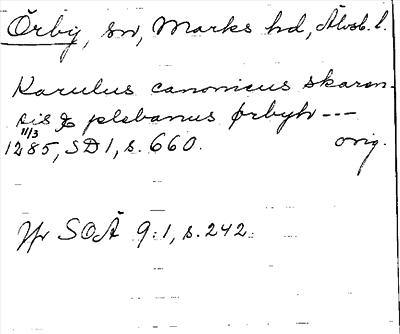 Örby, sn, Marks hd, Älvsb. l.
Karulus canonicus skaren-
sis & plebanus ørbyh ---
11/3
1285, SD 1, s. 660. orig.
Jfr SOÄ 9:1, s. 242.